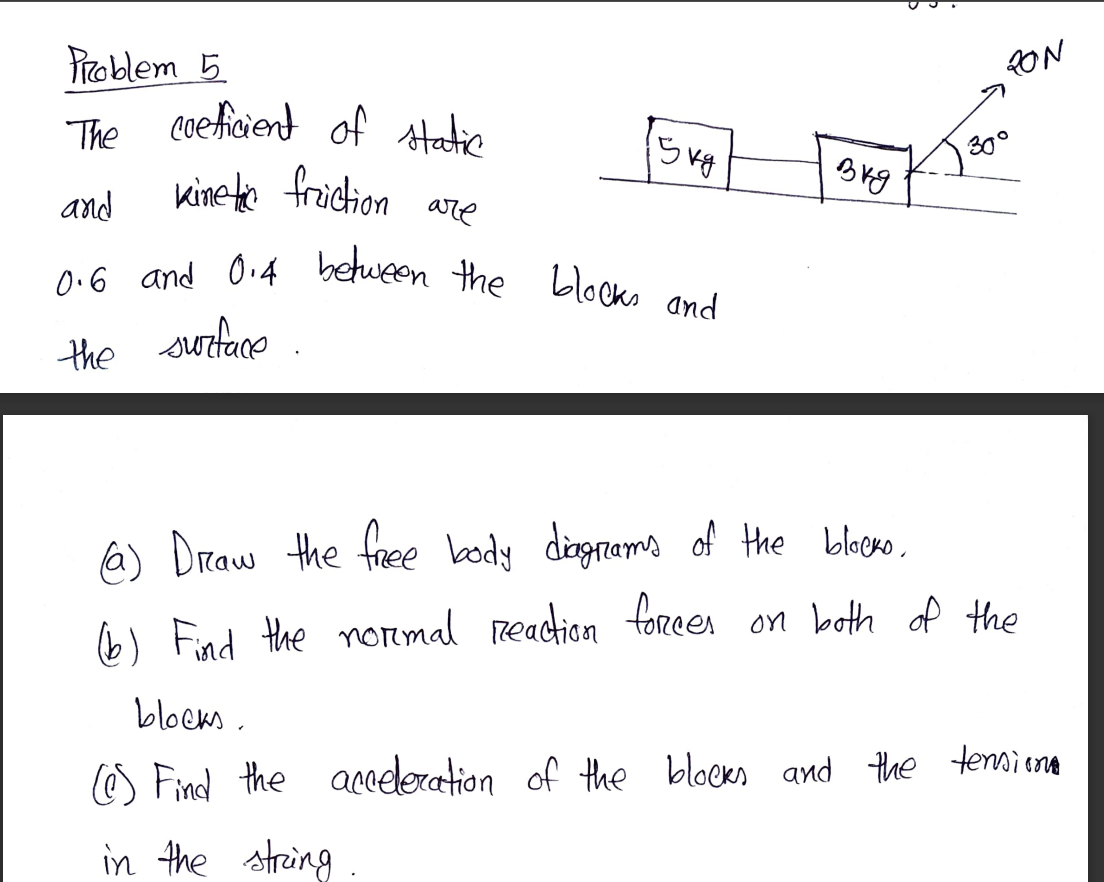 Problem 5
20 N
The coefficient of static
5 kg
3 kg
30°
and kinetic friction are
0.6 and 0.4 between the blocks and
the surface.
(a) Draw the free body diagrams of the blocks.
(b) Find the normal reaction forces on both of the
blocks.
(c) Find the acceleration of the blocks and the tensions
in the string.